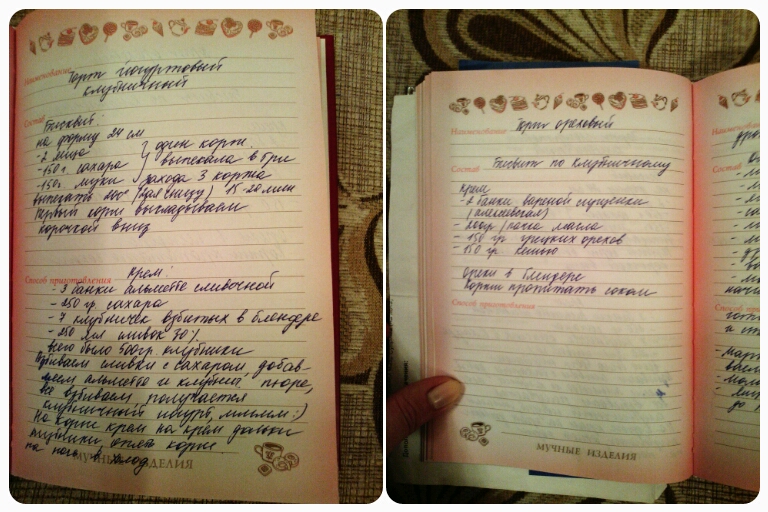 Наименование
Торт йогуртовый
клубничный
Состав
Бисквит:
на форму 24 см
- 2 яйца
- 150 г. сахара } один корж.
- 150 г муки } выпекала в три
захода 3 коржа
выпекать 200° (для снизу) 15-20 мин
Первый корж выкладываем
корочкой вниз
Способ приготовления
Крем:
- 3 банки альметте сливочной
- 250 гр сахара
- 7 клубничек взбитых в блендере
- 250 мл сливок 30%
всего было 500 гр. клубники
Взбиваем сливки с сахаром, добав-
ляем альметте и клубнич. пюре,
все взбиваем, получается
клубничный йогурт, ммммм :)
На корж крем на крем дольки
клубники, опять корж.
на ночь в холод.
МУЧНЫЕ ИЗДЕЛИЯ
Наименование
Торт ореховый
Состав
Бисквит по клубничному
Крем
- 2 банки вареной сгущенки
(алексеевская)
- 200 гр / пачка масла
- 150 гр грецких орехов
- 150 гр кешью
Орехи в блендере
Коржи пропитать соком
Способ приготовления
МУЧНЫЕ ИЗДЕЛИЯ
Наименов
Состав
Способ